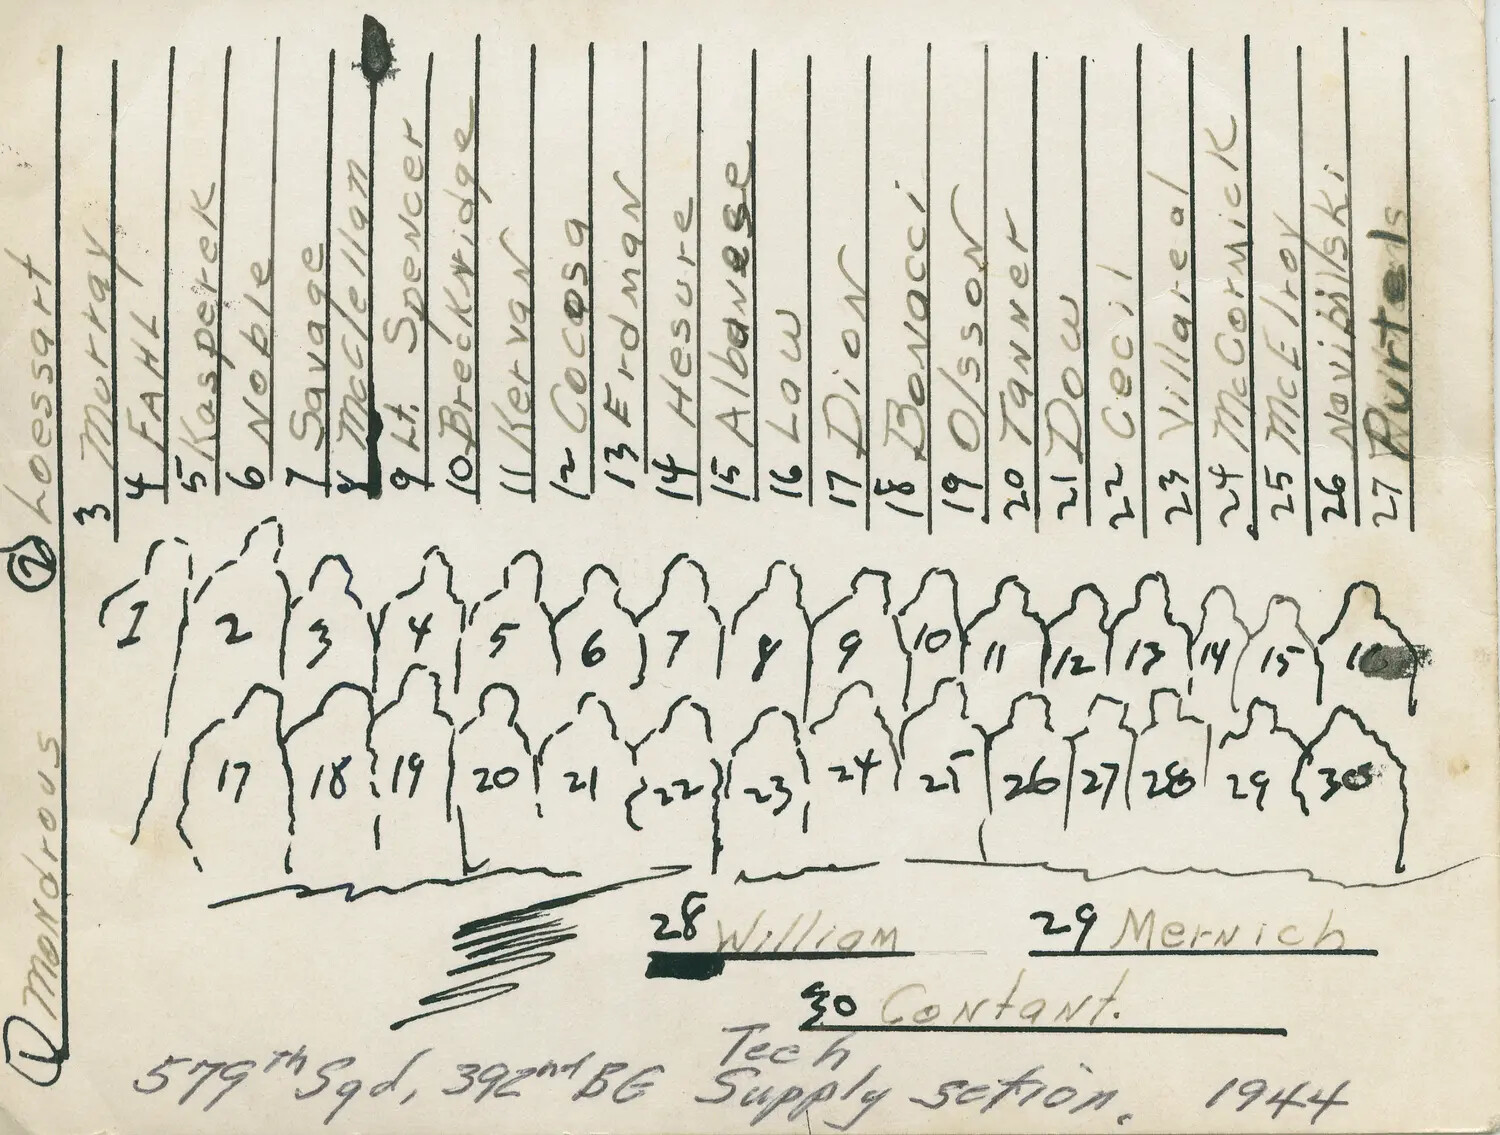 ① Mondrous
② Loessart
3 Murray
4 FAHL
5 Kasperek
6 Noble
7 Savage
8 McClellan
9 Lt. Spencer
10 Brecknidge
11 Kervan
12 Cocosa
13 Erdman
14 Hesure
15 Albanese
16 Law
17 Dion
18 Bonacci
19 Olsson
20 Tanner
21 Dow
22 Cecil
23 Villareal
24 McCormick
25 McElroy
26
27 Purtels
1 2 3 4 5 6 7 8 9 10 11 12 13 14 15 16
17 18 19 20 21 22 23 24 25 26 27 28 29 30
28 William
29 Mernich
30 Contant.
579th Sqd, 392nd BG Tech Supply sction. 1944